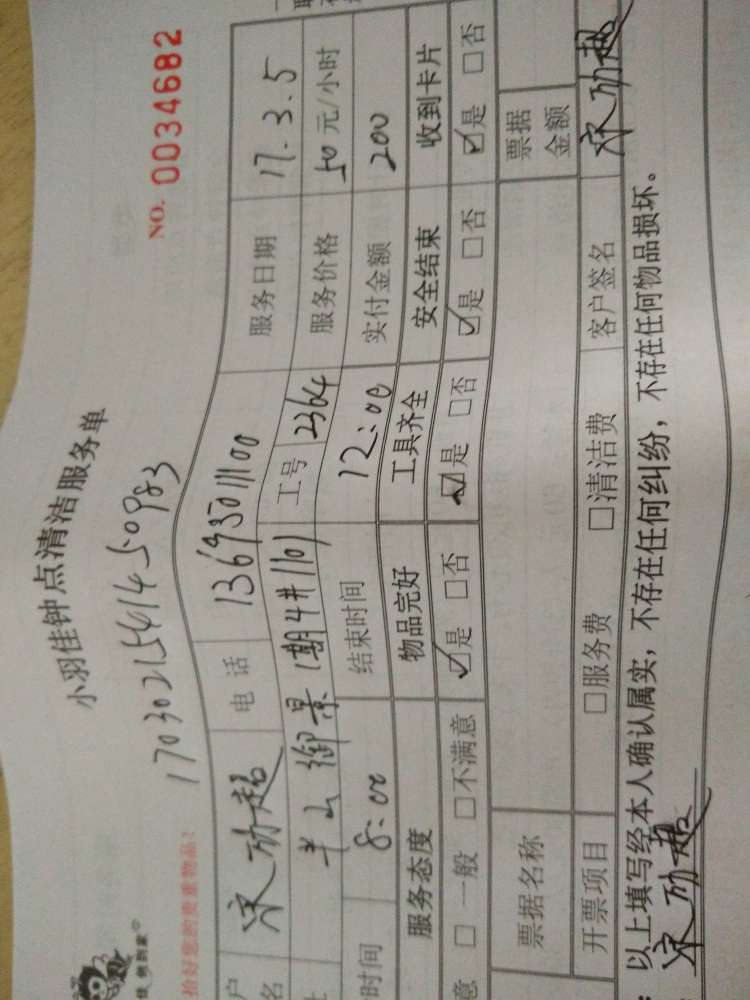 小羽佳钟点清洁服务单
NO. 0034682
1703021541450983
拾好您的贵重物品!
户 电话 13695011100 服务日期 17.3.5
名
半山御景1期4#1101 工号 2364 服务价格 50元/小时
时间 8:00 结束时间 12:00 实付金额 200
服务态度 物品完好 工具齐全 安全结束 收到卡片
意 □一般 □不满意 ☑是 □否 ☑是 □否 ☑是 □否 ☑是 □否
票据名称 票据金额
开票项目 □服务费 □清洁费 客户签名
:以上填写经本人确认属实,不存在任何纠纷,不存在任何物品损坏。